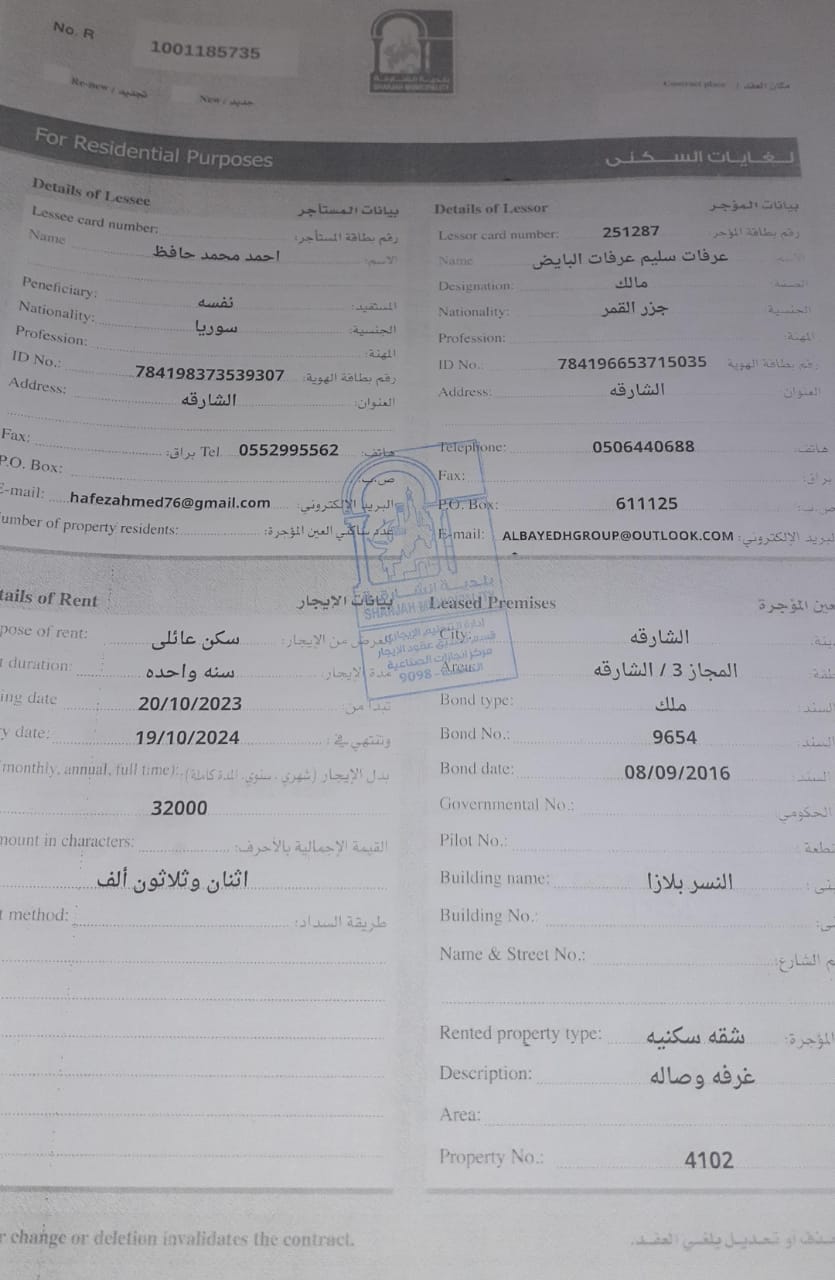 No. R
1001185735
بلدية الشارقة
SHARJAH MUNICIPALITY
Re-new / تجديد
New / جديد
Contract place / مكان العقد
For Residential Purposes
لغايات السكنى
Details of Lessee بيانات المستأجر
Lessee card number: رقم بطاقة المستأجر:
Name احمد محمد حافظ الاسم:
Peneficiary: نفسه المستفيد:
Nationality: سوريا الجنسية:
Profession: المهنة:
ID No.: 784198373539307 رقم بطاقة الهوية
Address: الشارقه العنوان:
Fax: براق: Tel 0552995562 هاتف:
P.O. Box: ص.ب:
E-mail: hafezahmed76@gmail.com البريد الإلكتروني:
umber of property residents: عدد ساكني العين المؤجرة:
Details of Lessor بيانات المؤجر
Lessor card number: 251287 رقم بطاقة المؤجر:
Name عرفات سليم عرفات البايض الاسم:
Designation: مالك الصفة:
Nationality: جزر القمر الجنسية:
Profession: المهنة:
ID No.: 784196653715035 رقم بطاقة الهوية
Address: الشارقه العنوان:
Telephone: 0506440688 هاتف:
Fax: براق:
P.O. Box: 611125 ص.ب:
E-mail: ALBAYEDHGROUP@OUTLOOK.COM لبريد الإلكتروني:
بلدية الشارقة
SHARJAH MUNICIPALITY
إدارة التنظيم الإيجاري
قسم تصديق عقود الايجار
مركز انجازات الصناعية
9098
tails of Rent بيانات الايجار
pose of rent: سكن عائلى الغرض من الإيجار:
t duration: سنه واحده مدة الايجار:
ing date 20/10/2023 تبدأ من:
y date: 19/10/2024 وتنتهي في:
monthly, annual, full time): بدل الإيجار (شهري، سنوي، المدة كاملة):
32000
mount in characters: القيمة الإجمالية بالأحرف:
اثنان وثلاثون ألف
t method: طريقة السداد:
Leased Premises عين المؤجرة
City: الشارقه ينة:
Area: المجاز 3 / الشارقه طقة
Bond type: ملك السند:
Bond No.: 9654 السند:
Bond date: 08/09/2016 السند:
Governmental No.: الحكومي
Pilot No.: قطعة:
Building name: النسر بلازا نى:
Building No.: ى:
Name & Street No.: م الشارع:
Rented property type: شقه سكنيه المؤجرة:
Description: غرفه وصاله
Area:
Property No.: 4102
r change or deletion invalidates the contract.
حذف او تعديل يلغي العقد.